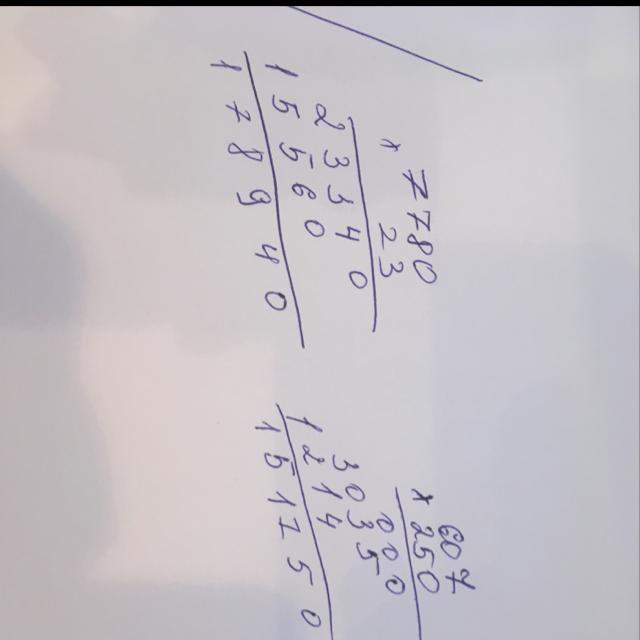 7780
× 23
23340
15560
178940
607
× 250
000
3035
1214
151750